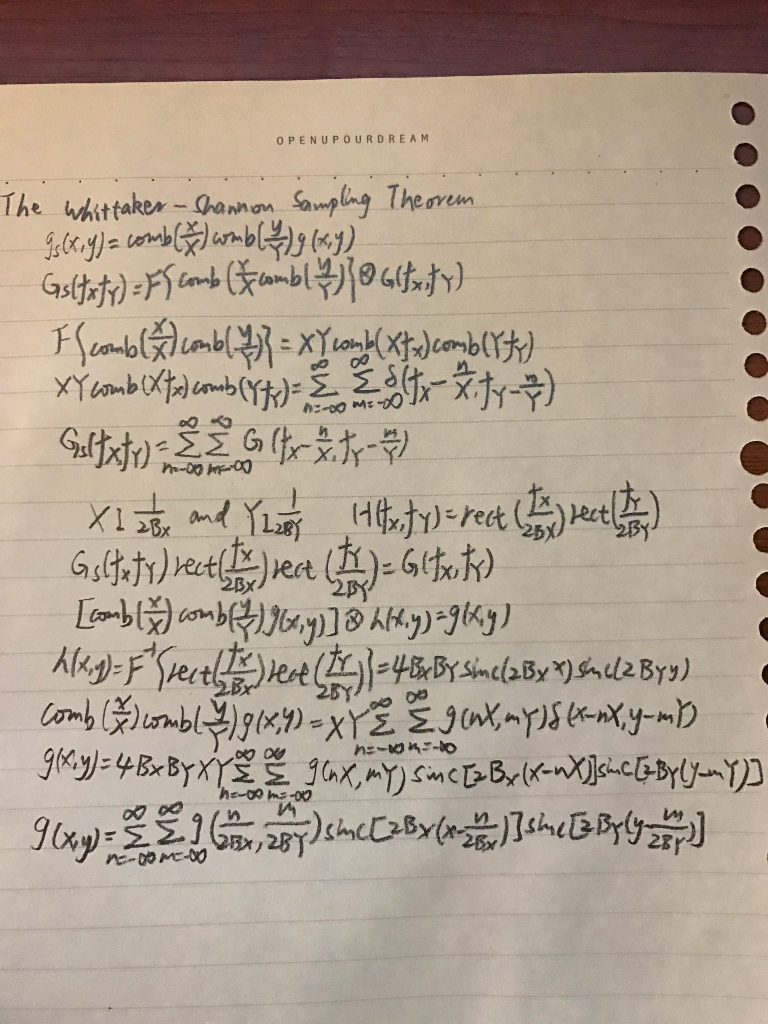 OPENUPOURDREAM
The Whittaker – Shannon Sampling Theorem
gs(x,y) = comb(x/X) comb(y/Y) g(x,y)
Gs(fX fY) = F{comb(x/X comb(y/Y)} ⊗ G(fX, fY)
F{comb(x/X) comb(y/Y)} = XY comb(XfX) comb(YfY)
XY comb(XfX) comb(YfY) = Σ_{n=-∞}^{∞} Σ_{m=-∞}^{∞} δ(fX - n/X, fY - n/Y)
Gs(fX fY) = Σ_{n=-∞}^{∞} Σ_{m=-∞}^{∞} G(fX - n/X, fY - m/Y)
X ⊥ 1/2BX and Y ⊥ 1/2BY H(fX, fY) = rect(fX/2BX) rect(fY/2BY)
Gs(fX fY) rect(fX/2BX) rect(fY/2BY) = G(fX, fY)
[comb(x/X) comb(y/Y) g(x,y)] ⊗ h(x,y) = g(x,y)
h(x,y) = F^-1{rect(fX/2BX) rect(fY/2BY)} = 4BXBY sinc(2BX x) sinc(2BY y)
comb(x/X) comb(y/Y) g(x,y) = XY Σ_{n=-∞}^{∞} Σ_{m=-∞}^{∞} g(nX, mY) δ(x-nX, y-mY)
g(x,y) = 4BXBYXY Σ_{n=-∞}^{∞} Σ_{m=-∞}^{∞} g(nX, mY) sinc[2BX(x-nX)] sinc[2BY(y-mY)]
g(x,y) = Σ_{n=-∞}^{∞} Σ_{m=-∞}^{∞} g(n/2BX, m/2BY) sinc[2BX(x - n/2BX)] sinc[2BY(y - m/2BY)]